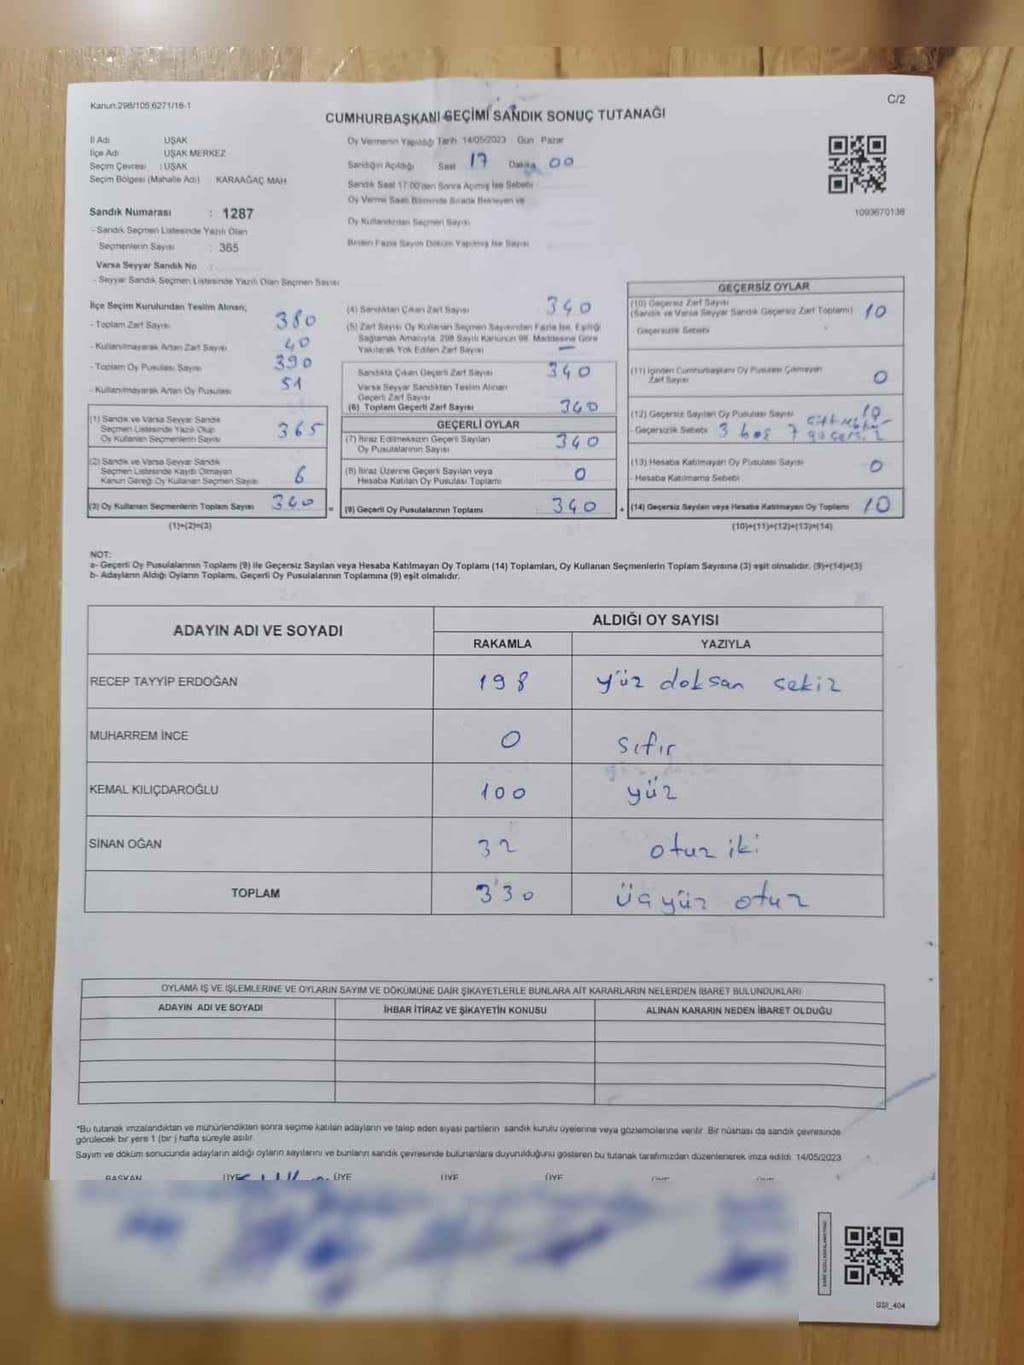 Kanun:298/105,6271/16-1
C/2
CUMHURBAŞKANI SEÇİMİ SANDIK SONUÇ TUTANAĞI
İl Adı UŞAK
İlçe Adı UŞAK MERKEZ
Seçim Çevresi : UŞAK
Seçim Bölgesi (Mahalle Adı) KARAAĞAÇ MAH
Sandık Numarası : 1287
- Sandık Seçmen Listesinde Yazılı Olan
Seçmenlerin Sayısı : 365
Varsa Seyyar Sandık No
- Seyyar Sandık Seçmen Listesinde Yazılı Olan Seçmen Sayısı
Oy Vermenin Yapıldığı Tarih 14/05/2023 Gün Pazar
Sandığın Açıldığı Saat 17 Dakika 00
Sandık Saat 17:00'den Sonra Açılmış İse Sebebi
Oy Verme Saati Bitiminde Sırada Bekleyen ve
Oy Kullandırılan Seçmen Sayısı
Birden Fazla Sayım Döküm Yapılmış İse Sayısı
1093670138
İlçe Seçim Kurulundan Teslim Alınan;
- Toplam Zarf Sayısı 380
- Kullanılmayarak Artan Zarf Sayısı 40
- Toplam Oy Pusulası Sayısı 390
- Kullanılmayarak Artan Oy Pusulası 51
(1) Sandık ve Varsa Seyyar Sandık
Seçmen Listesinde Yazılı Olup
Oy Kullanan Seçmenlerin Sayısı 365
(2) Sandık ve Varsa Seyyar Sandık
Seçmen Listesinde Kayıtlı Olmayan
Kanun Gereği Oy Kullanan Seçmen Sayısı 6
(3) Oy Kullanan Seçmenlerin Toplam Sayısı 340
(1)+(2)=(3)
(4) Sandıktan Çıkan Zarf Sayısı 340
(5) Zarf Sayısı Oy Kullanan Seçmen Sayısından Fazla İse, Eşitliği
Sağlamak Amacıyla, 298 Sayılı Kanunun 98. Maddesine Göre
Yakılarak Yok Edilen Zarf Sayısı —
Sandıkta Çıkan Geçerli Zarf Sayısı 340
Varsa Seyyar Sandıktan Teslim Alınan
Geçerli Zarf Sayısı
(6) Toplam Geçerli Zarf Sayısı 340
GEÇERLİ OYLAR
(7) İtiraz Edilmeksizin Geçerli Sayılan
Oy Pusulalarının Sayısı 340
(8) İtiraz Üzerine Geçerli Sayılan veya
Hesaba Katılan Oy Pusulası Toplamı 0
(9) Geçerli Oy Pusulalarının Toplamı 340
GEÇERSİZ OYLAR
(10) Geçersiz Zarf Sayısı
(Sandık ve Varsa Seyyar Sandık Geçersiz Zarf Toplamı) 10
- Geçersizlik Sebebi
(11) İçinden Cumhurbaşkanı Oy Pusulası Çıkmayan
Zarf Sayısı 0
(12) Geçersiz Sayılan Oy Pusulası Sayısı 10
- Geçersizlik Sebebi 3 boş 7
(13) Hesaba Katılmayan Oy Pusulası Sayısı 0
- Hesaba Katılmama Sebebi
(14) Geçersiz Sayılan veya Hesaba Katılmayan Oy Toplamı 10
(10)+(11)+(12)+(13)=(14)
NOT:
a- Geçerli Oy Pusulalarının Toplamı (9) ile Geçersiz Sayılan veya Hesaba Katılmayan Oy Toplamı (14) Toplamları, Oy Kullanan Seçmenlerin Toplam Sayısına (3) eşit olmalıdır. (9)+(14)=(3)
b- Adayların Aldığı Oyların Toplamı, Geçerli Oy Pusulalarının Toplamına (9) eşit olmalıdır.
ADAYIN ADI VE SOYADI
ALDIĞI OY SAYISI
RAKAMLA YAZIYLA
RECEP TAYYİP ERDOĞAN 198 yüz doksan sekiz
MUHARREM İNCE 0 sıfır
KEMAL KILIÇDAROĞLU 100 yüz
SİNAN OĞAN 32 otuz iki
TOPLAM 330 üçyüz otuz
OYLAMA İŞ VE İŞLEMLERİNE VE OYLARIN SAYIM VE DÖKÜMÜNE DAİR ŞİKAYETLERLE BUNLARA AİT KARARLARIN NELERDEN İBARET BULUNDUKLARI
ADAYIN ADI VE SOYADI İHBAR İTİRAZ VE ŞİKAYETİN KONUSU ALINAN KARARIN NEDEN İBARET OLDUĞU
*Bu tutanak imzalandıktan ve mühürlendikten sonra seçime katılan adayların ve talep eden siyasi partilerin sandık kurulu üyelerine veya gözlemcilerine verilir. Bir nüshası da sandık çevresinde
görülecek bir yere 1 (bir) hafta süreyle asılır.
Sayım ve döküm sonucunda adayların aldığı oyların sayılarını ve bunların sandık çevresinde bulunanlara duyurulduğunu gösteren bu tutanak tarafımızdan düzenlenerek imza edildi. 14/05/2023
BAŞKAN ÜYE ÜYE ÜYE ÜYE ÜYE ÜYE
SSI_404